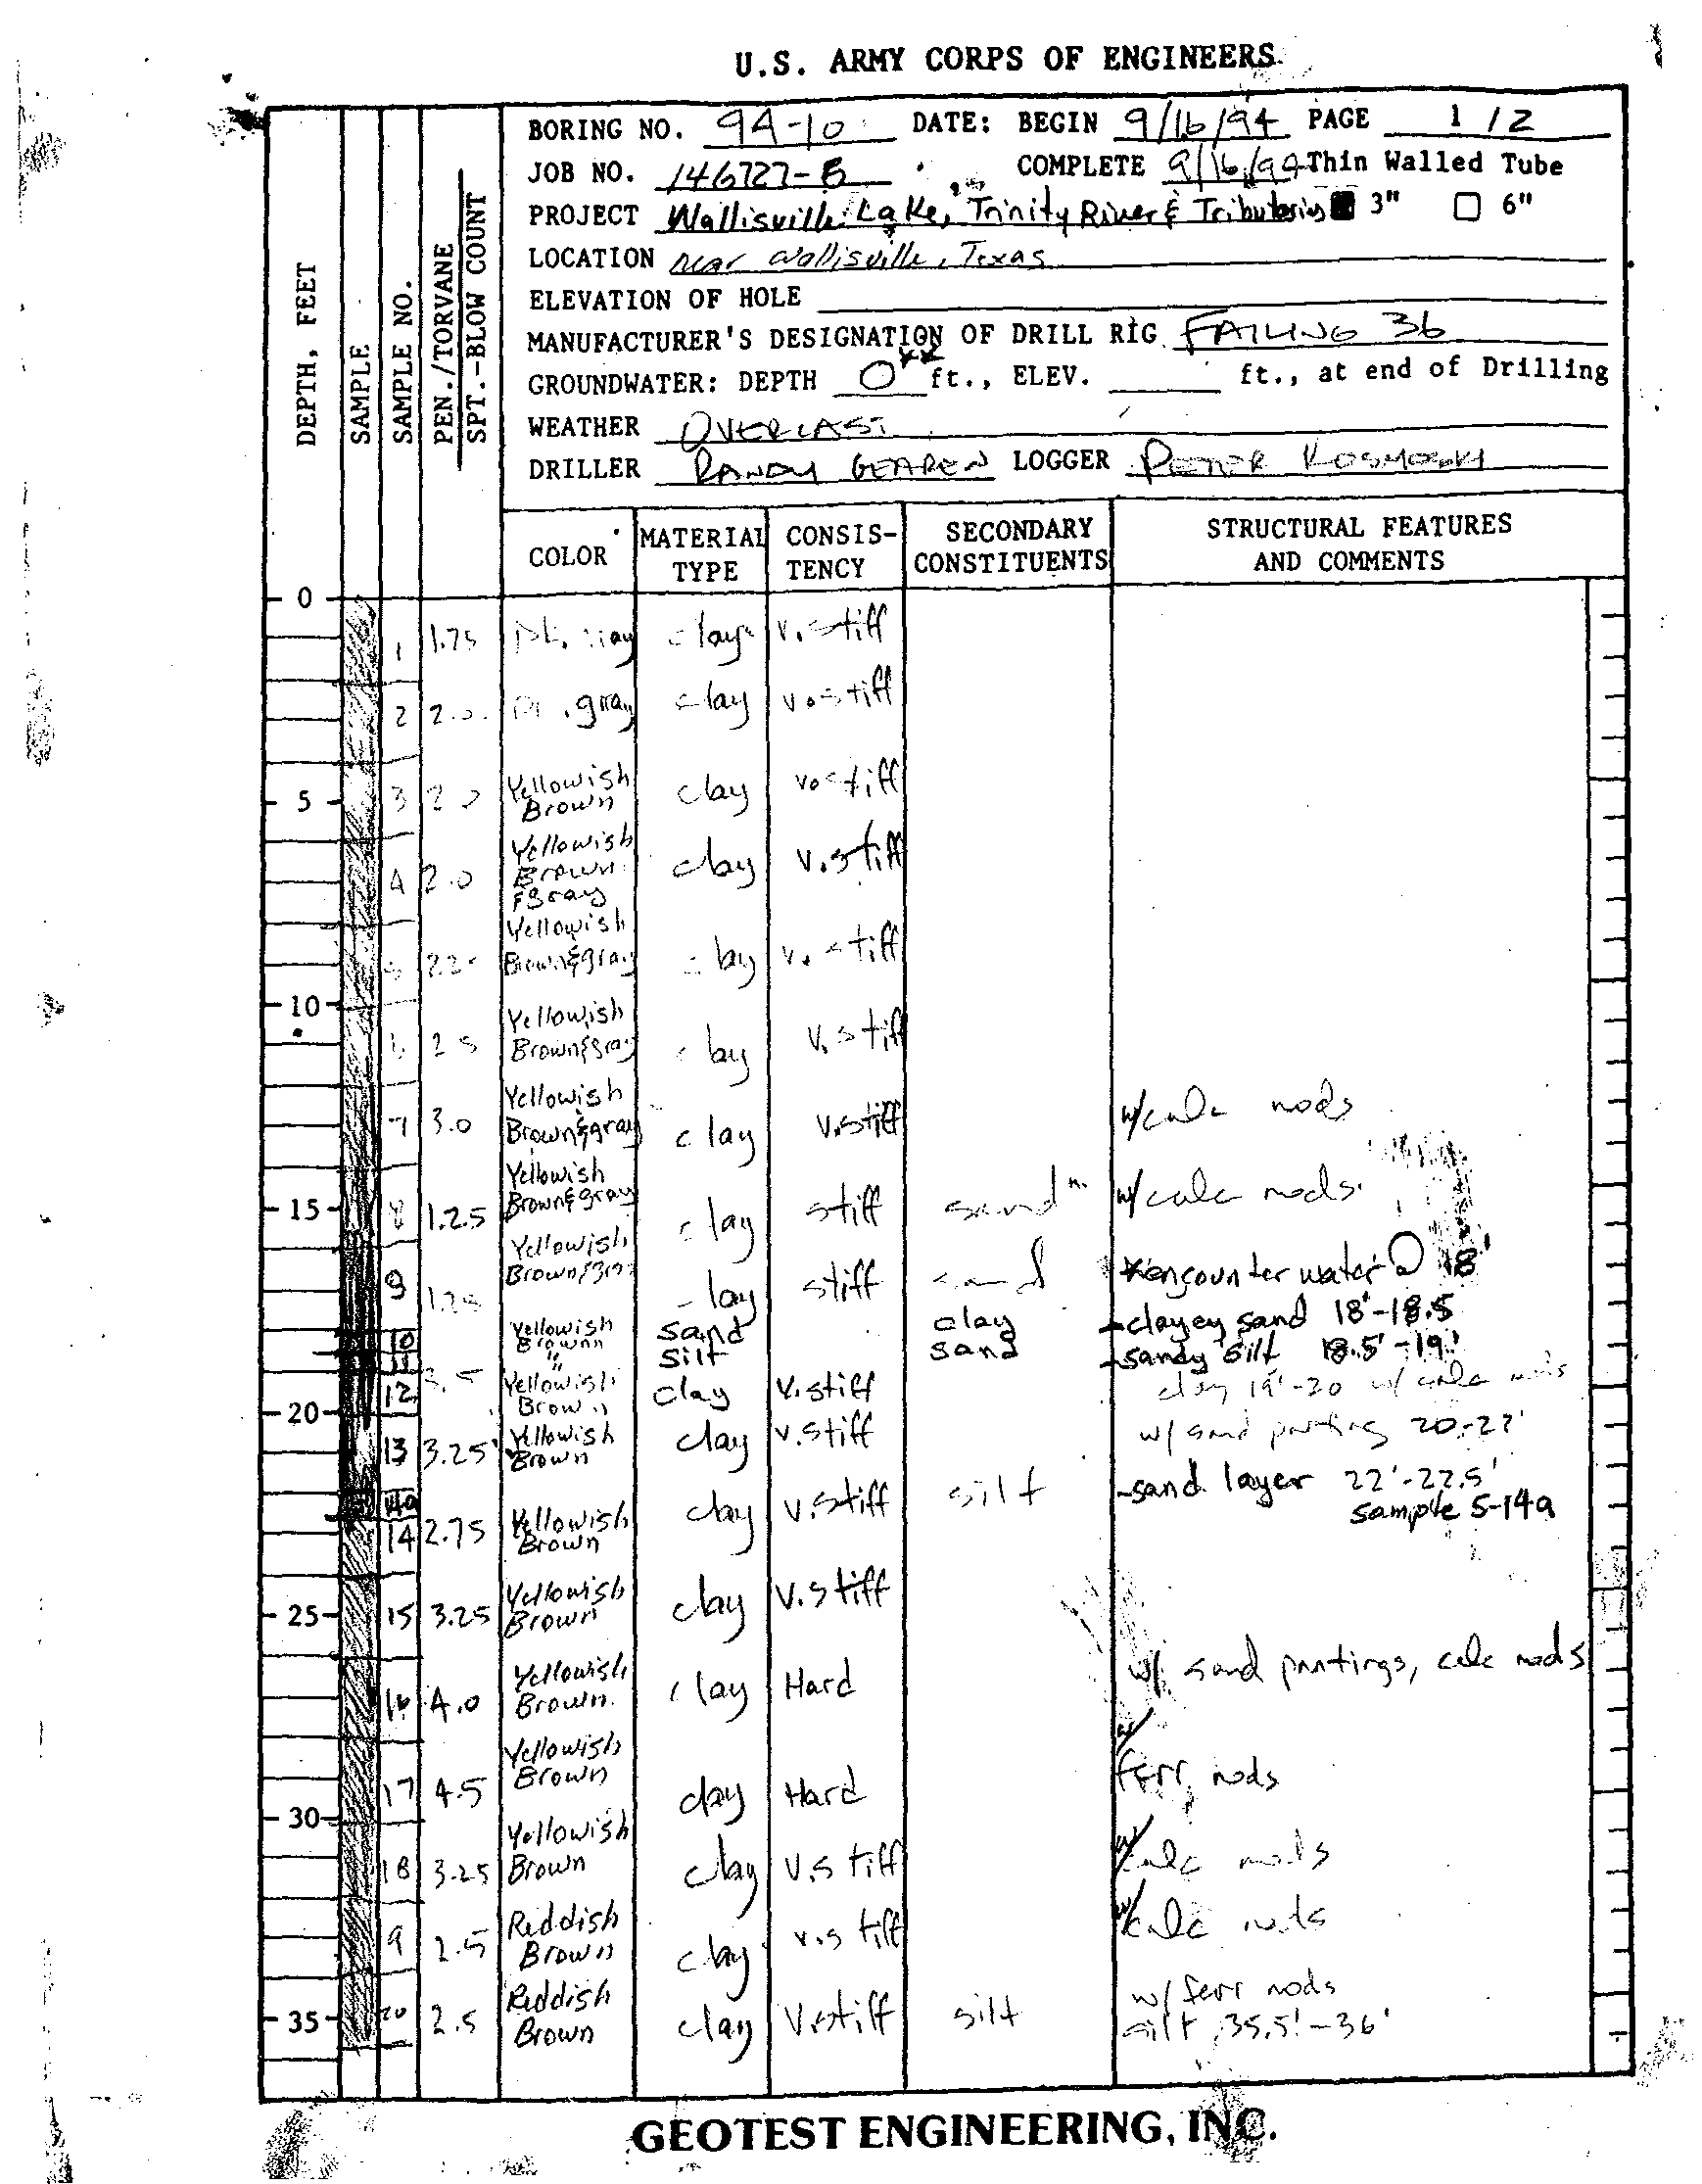 U.S. ARMY CORPS OF ENGINEERS
BORING NO. 94-10 DATE: BEGIN 9/16/94 PAGE 1 / 2
JOB NO. 146727-B COMPLETE 9/16/94 Thin Walled Tube
PROJECT Wallisville Lake, Trinity River & Tributaries 3" 6"
LOCATION near Wallisville, Texas
ELEVATION OF HOLE
MANUFACTURER'S DESIGNATION OF DRILL RIG FAILING 36
GROUNDWATER: DEPTH 0** ft., ELEV. ft., at end of Drilling
WEATHER OVERCAST
DRILLER RANDY GEAREN LOGGER PETER KOSMOSKI
DEPTH, FEET SAMPLE SAMPLE NO. PEN./TORVANE SPT.-BLOW COUNT
COLOR MATERIAL TYPE CONSIS-TENCY SECONDARY CONSTITUENTS STRUCTURAL FEATURES AND COMMENTS
0
1 1.75 gray clay v.stiff
2 2.0 gray clay v.stiff
5 3 2.0 Yellowish Brown clay v.stiff
4 2.0 Yellowish Brown & gray clay v.stiff
5 Yellowish Brown & gray clay v.stiff
10
6 2.5 Yellowish Brown & gray clay v.stiff
7 3.0 Yellowish Brown & gray clay v.stiff w/calc nods
15 8 1.25 Yellowish Brown & gray clay stiff sand w/calc nods
9 1.25 Yellowish Brown & gray clay stiff sand *encounter water @ 18'
10 Yellowish Brown sand clay -clayey sand 18'-18.5
11 " " silt sand -sandy silt 18.5'-19'
12 Yellowish Brown clay v.stiff clay 19'-20 w/ calc nods
20
13 3.25 Yellowish Brown clay v.stiff w/ sand parting 20-22'
14a -sand layer 22'-22.5'
sample S-14a
14 2.75 Yellowish Brown clay v.stiff silt
25 15 3.25 Yellowish Brown clay v.stiff
16 4.0 Yellowish Brown clay Hard w/ sand partings, calc nods
17 4.5 Yellowish Brown clay Hard w/ ferr. nods
30
18 3.25 Yellowish Brown clay v.stiff w/ calc nods
9 2.5 Reddish Brown clay v.stiff w/ calc nods
35 20 2.5 Reddish Brown clay v.stiff silt w/ ferr nods
silt 35.5'-36'
GEOTEST ENGINEERING, INC.